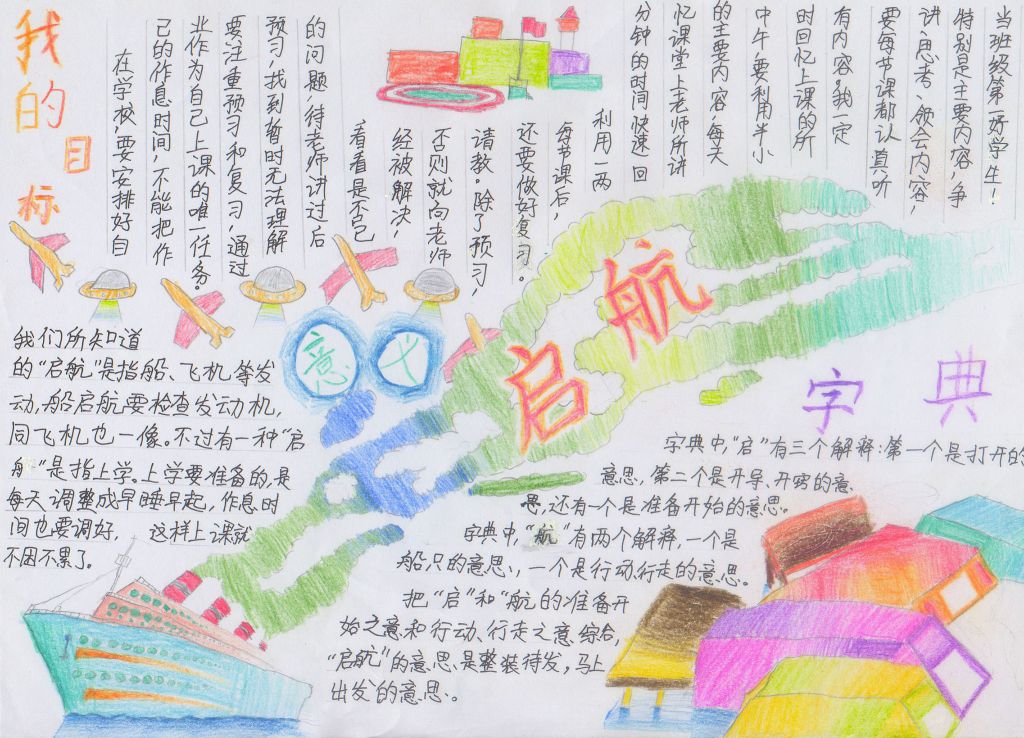 我的目标
在学校，要安排好自
己的作息时间，不能把作
业作为自己上课的唯一任务。
要注重预习和复习，通过
预习，找到暂时无法理解
的问题，待老师讲过后
看看是不已
经被解决，
否则就向老师
请教，除了预习，
还要做好复习。
每节课后，
利用一两
分钟的时间快速回
忆课堂上老师所讲
的主要内容，每天
中午，要利用半小
时回忆上课的所
有内容。我一定
要每节课都认真听
讲、思考、领会内容，
特别是主要内容，争
当班级第一好学生！
启航
意义
我们所知道
的“启航”是指船、飞机等发
动，船启航要检查发动机，
同飞机也一像。不过有一种“启
航”是指上学。上学要准备的，是
每天调整成早睡早起，作息时
间也要调好，这样上课就
不困不累了。
字典
字典中，“启”有三个解释：第一个是打开的
意思，第二个是开导、开窍的意
思，还有一个是准备开始的意思。
字典中，“航”有两个解释，一个是
船只的意思，一个是行动、行走的意思。
把“启”和“航”的准备开
始之意和行动、行走之意综合，
“启航”的意思是整装待发，马上
出发的意思。